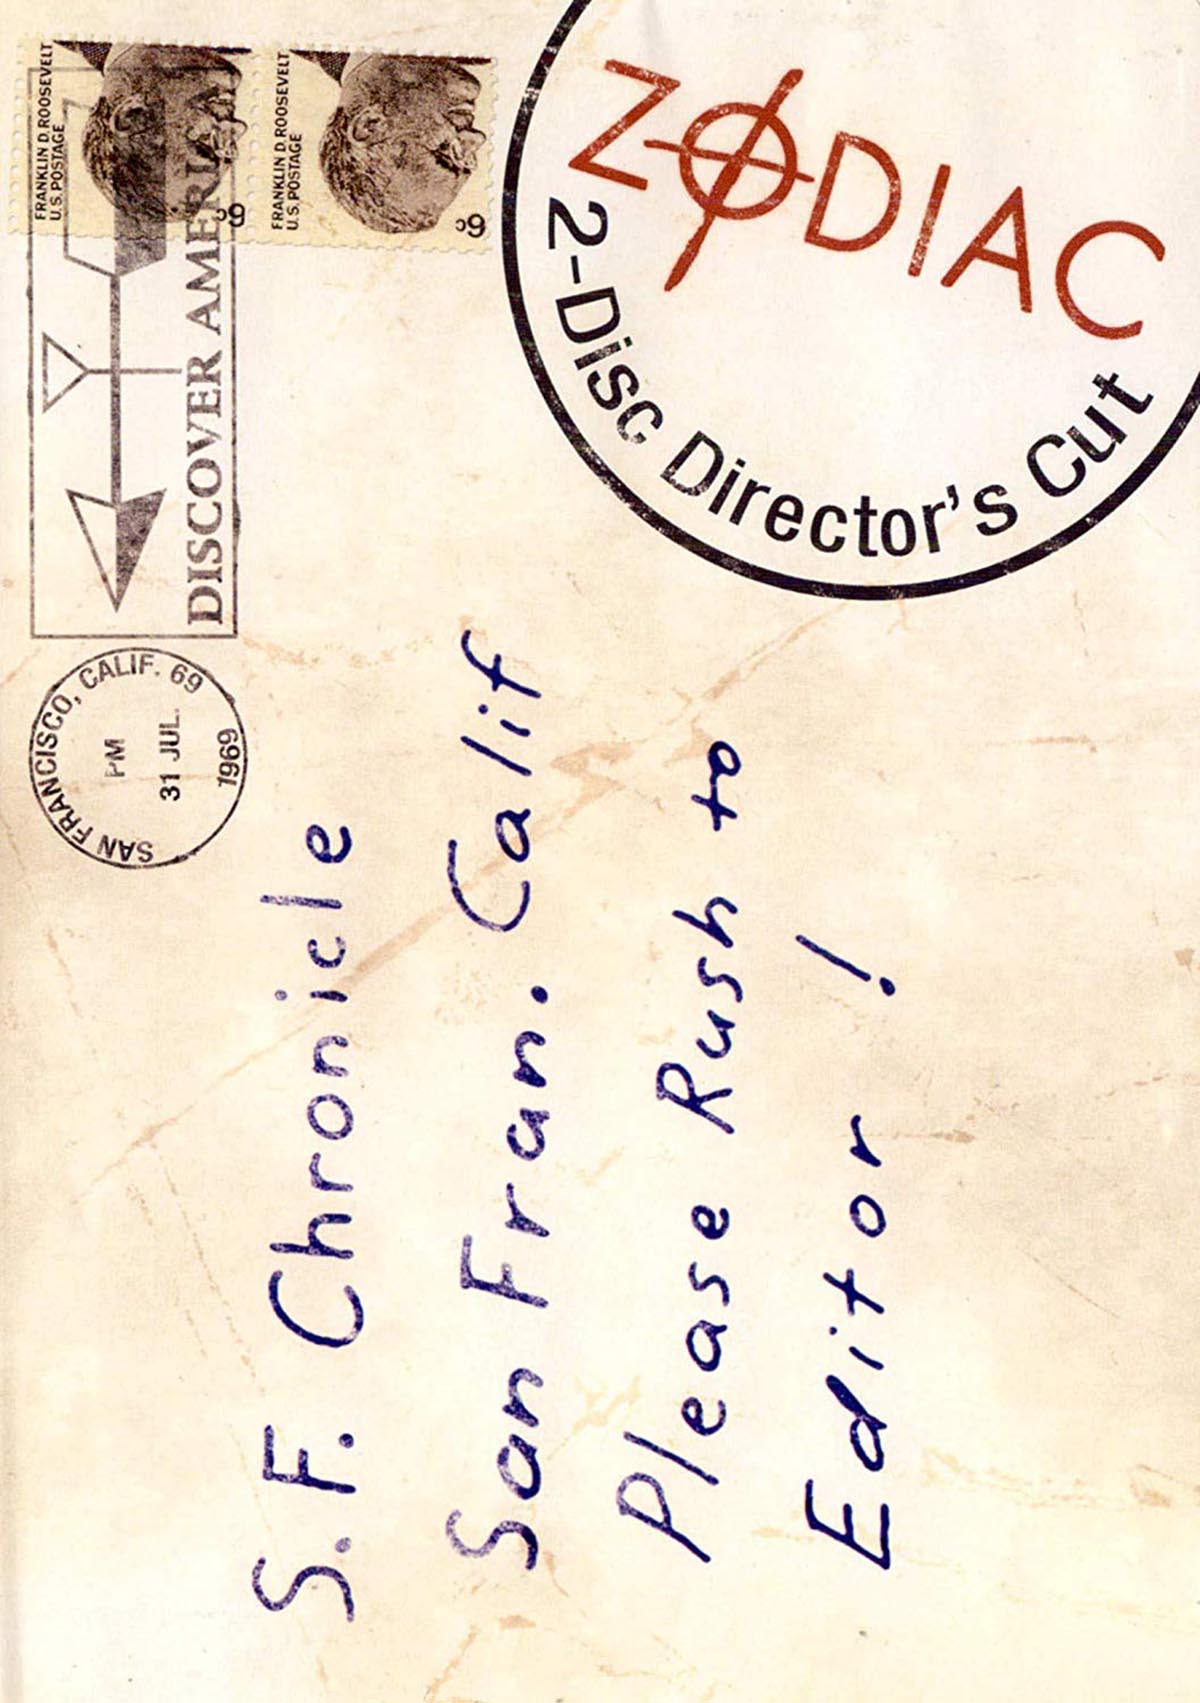 ZODIAC
2-Disc Director's Cut
FRANKLIN D. ROOSEVELT
U.S. POSTAGE
6c
FRANKLIN D. ROOSEVELT
U.S. POSTAGE
6c
DISCOVER AMERICA
SAN FRANCISCO, CALIF. 69
PM
31 JUL.
1969
S.F. Chronicle
San Fran. Calif
Please Rush to
Editor!